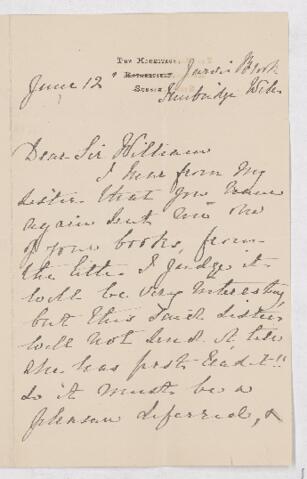 The Hermitage,
Rotherfield
Sussex
Jarvis Brook
June 12
Tunbridge Wells
Dear Sir William
I hear from my
sister that you have
again sent me one
of your books, from
the title I judge it
will be very interesting
but this said sister
will not send it, till
she has first read it!!
so it must be a
pleasure deferred, &